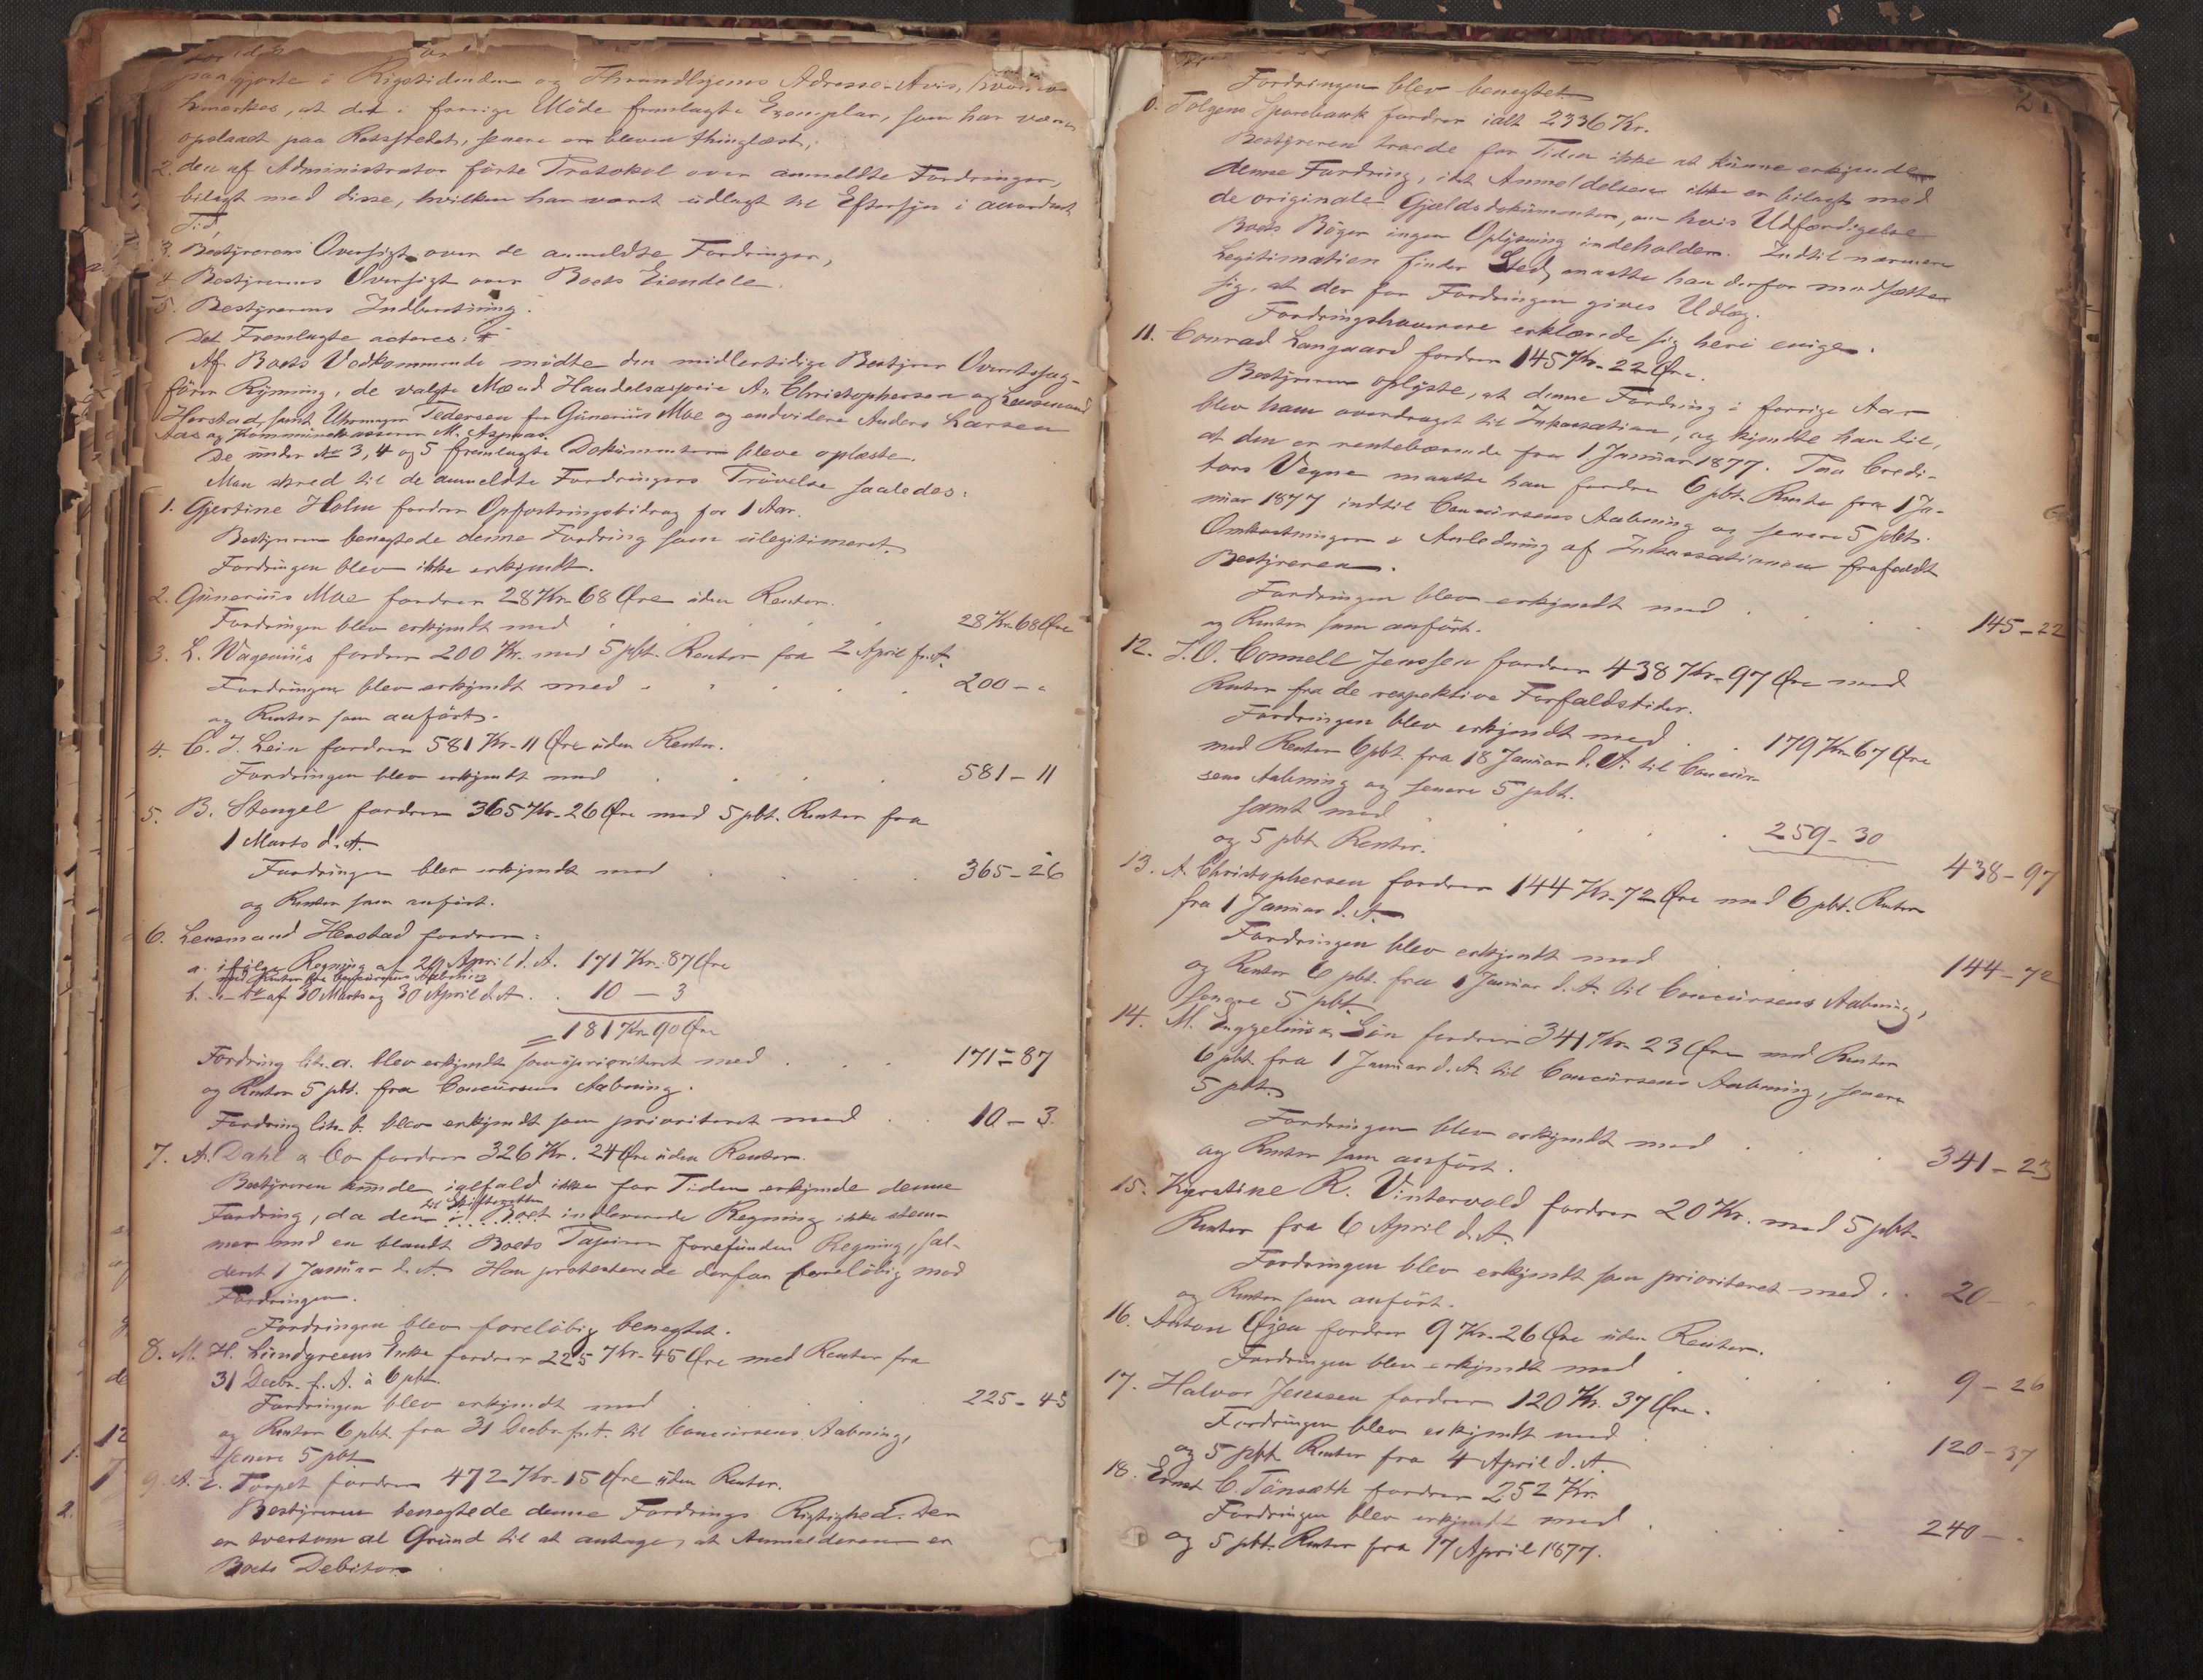 paagjorte i Rigstidenden og Throndhjems Adresse-Avis, hvorom
bemærkes, at det i forrige Møde fremlagte Exemplar, som har været
opslaaet paa Retsstedet, senere er bleven thinglæst,
2. den af Administrator førte Protokol over anmeldte Fordringer,
bilagt med disse, hvilken har været udlagt til Eftersyn i anordnet
Tid,
3. Bestyrerens Oversigt over de anmeldte Fordringer,
4. Bestyrerens Oversigt over Boets Eiendele.
5. Bestyrerens Indberetning.
Det Fremlagte acteres:
Af Boets Vedkommende mødte den midlertidige Bestyrer Overretssag-
fører Rynning, de valgte Mænd Handelsexpeditør A. Christophersen og Lensmand
Herstad, samt Uhrmager Pedersen for Gunerius Moe og endvidere Anders Larsen
Aas og Kommunekasserer M. Aspaas.
De under No 3, 4 og 5 fremlagte Dokumenter bleve oplæste.
Man skred til de anmeldte Fordringers Prøvelse saaledes:
1. Gjertine Holm fordrer Opfostringsbidrag for 1 Aar.
Bestyreren benegtede denne Fordring som ulegitimeret.
Fordringen blev ikke erkjendt.
2. Gunerius Moe fordrer 28 Kr. 68 Øre uden Renter.
Fordringen blev erkjendt med . . . . . 28 Kr. 68 Øre
3. L. Wagenius fordrer 200 Kr. med 5 pbt. Renter fra 2 April f. A.
Fordringen blev erkjendt med . . . . . 200 - "
og Renter som anført.
4. C. J. Lein fordrer 581 Kr. 11 Øre uden Renter.
Fordringen blev erkjendt med . . . . 581 - 11
5. B. Stengel fordrer 365 Kr. 26 Øre med 5 pbt. Renter fra
1 Marts d. A.
Fordringen blev erkjendt med . . . . 365 - 26
og Renter som anført.
6. Lensmand Herstad fordrer:
a. ifølge Regning af 20 April d. A. 171 Kr. 87 Øre
med Renter fra Concursens Aabning
b. - " - do af 30 Marts og 30 April d. A. . 10 - 3
= 181 Kr. 90 Øre
Fordring litr. a. blev erkjendt som uprioriteret med . . . 171 - 87
og Renter 5 pbt. fra Concursens Aabning.
Fordring litr. b. blev erkjendt som prioriteret med . . 10 - 3
7. A. Dahl & Co fordrer 326 Kr. 24 Øre uden Renter.
Bestyreren kunde ialfald ikke for Tiden erkjende denne
til Skifteretten
Fordring, da den i Boet indleverede Regning ikke stem-
mer med en blandt Boets Papirer forefunden Regning, sal-
deret 1 Januar d. A. Han protesterede derfor foreløbig mod
Fordringen.
Fordringen blev foreløbig benegtet.
8. M. H. Lundgreens Enke fordrer 225 Kr. 45 Øre med Renter fra
31 Decbr. f. A. à 6 pbt.
Fordringen blev erkjendt med . . . . 225 - 45
og Renter 6 pbt. fra 31 Decbr. f. A. til Concursens Aabning,
senere 5 pbt.
9. A. E. Torpet fordrer 472 Kr. 15 Øre uden Renter.
Bestyreren benegtede denne Fordrings Rigtighed. Der
er tvertom al Grund til at antage, at Anmelderen er
Boets Debitor.
Fordringen blev benegtet.
0. Tolgens Sparebank fordrer ialt 2336 Kr.
Bestyreren troede for Tiden ikke at kunne erkjende
denne Fordring, idet Anmeldelsen ikke er bilagt med
de originale Gjeldsdokumenter, om hvis Udfærdigelse
Boets Bøger ingen Oplysning indeholder. Indtil nærmere
Legitimation finder Sted, maatte han derfor modsætte
sig, at der for Fordringen gives Udlæg.
Fordringshaverne erklærede sig heri enige.
11. Conrad Langaard fordrer 145 Kr. 22 Øre.
Bestyreren oplyste, at denne Fordring i forrige Aar
blev ham overdraget til Inkassation, og kjendte han til,
at den er rentebærende fra 1 Januar 1877. Paa Credi-
tors Vegne maatte han fordre 6 pbt. Rente fra 1 Ja-
nuar 1877 indtil Concursens Aabning og senere 5 pbt.
Omkostninger i Anledning af Inkassationen frafaldt
Bestyreren.
Fordringen blev erkjendt med . . . 145 - 22
og Renter som anført.
12. J. O. Connell Jenssen fordrer 438 Kr. 97 Øre med
Renter fra de respektive Forfaldstider.
Fordringen blev erkjendt med . . 179 Kr. 67 Øre
med Renter 6 pbt. fra 18 Januar d. A. til Concur-
sens Aabning og senere 5 pbt.
samt med . . . . . 259 - 30
og 5 pbt. Renter.
438 - 97
13. A. Christophersen fordrer 144 Kr. 72 Øre med 6 pbt. Renter
fra 1 Januar d. A.
Fordringen blev erkjendt med . . . 144 - 72
og Renter 6 pbt. fra 1 Januar d. A. til Concursens Aabning,
senere 5 pbt.
14. M. Engzelius & Søn fordrer 341 Kr. 23 Øre med Renter
6 pbt. fra 1 Januar d. A. til Concursens Aabning, senere
5 pbt.
Fordringen blev erkjendt med . . . 341 - 23
og Renter som anført.
15. Kjerstine R. Vintervold fordrer 20 Kr. med 5 pbt.
Renter fra 6 April d. A.
Fordringen blev erkjendt som prioriteret med . . 20 -
og Renter som anført.
16. Anton Øien fordrer 9 Kr. 26 Øre uden Renter.
Fordringen blev erkjendt med . . . 9 - 26
17. Halvor Jenssen fordrer 120 Kr. 37 Øre.
Fordringen blev erkjendt med . . . 120 - 37
og 5 pbt. Renter fra 4 April d. A.
18. Ernst C. Tønsæth fordrer 252 Kr.
Fordringen blev erkjendt med . . . 240 -
og 5 pbt. Renter fra 17 April 1877.